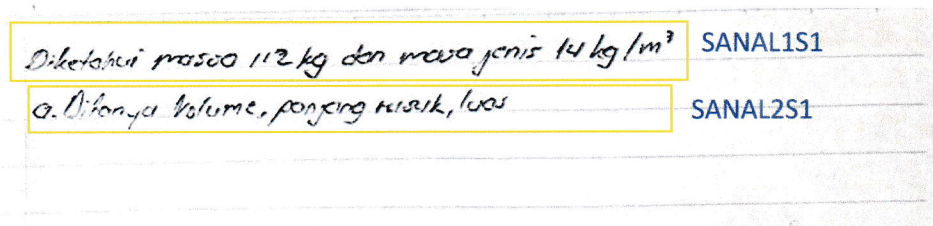 Diketahui massa 112 kg dan massa jenis 14 kg/m³ SANAL1S1
a. Ditanya Volume, panjang rusuk, luas SANAL2S1